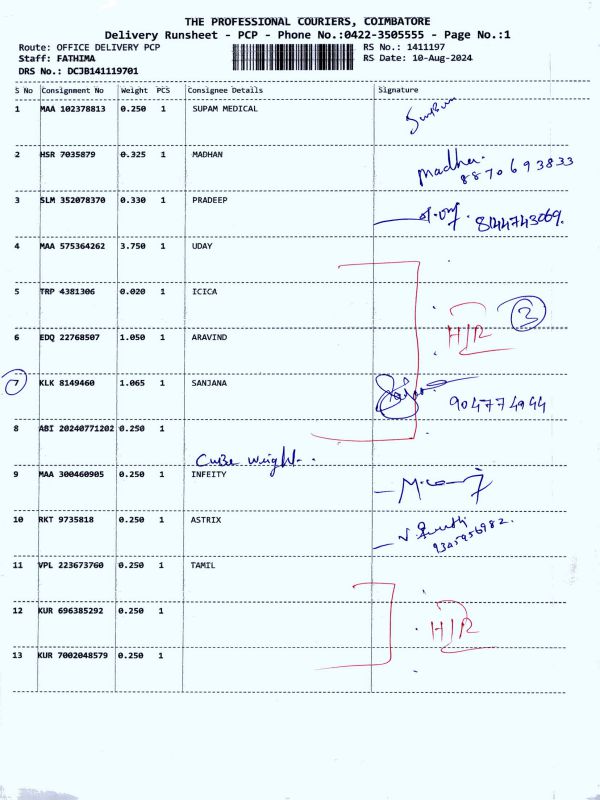 THE PROFESSIONAL COURIERS, COIMBATORE
Delivery Runsheet - PCP - Phone No.:0422-3505555 - Page No.:1
Route: OFFICE DELIVERY PCP RS No.: 1411197
Staff: FATHIMA RS Date: 10-Aug-2024
DRS No.: DCJB141119701
S No Consignment No Weight PCS Consignee Details Signature
1 MAA 102378813 0.250 1 SUPAM MEDICAL
2 HSR 7035879 0.325 1 MADHAN Madha.
8870693833
3 SLM 352078370 0.330 1 PRADEEP 8144743069.
4 MAA 575364262 3.750 1 UDAY
5 TRP 4381306 0.020 1 ICICA
H/R 3
6 EDQ 22768507 1.050 1 ARAVIND
7 KLK 8149460 1.065 1 SANJANA
904774944
8 ABI 20240771202 0.250 1
Cube Weight..
9 MAA 300460905 0.250 1 INFEITY
10 RKT 9735818 0.250 1 ASTRIX
9345956982.
11 VPL 223673760 0.250 1 TAMIL
12 KUR 696385292 0.250 1
H/R
13 KUR 7002048579 0.250 1